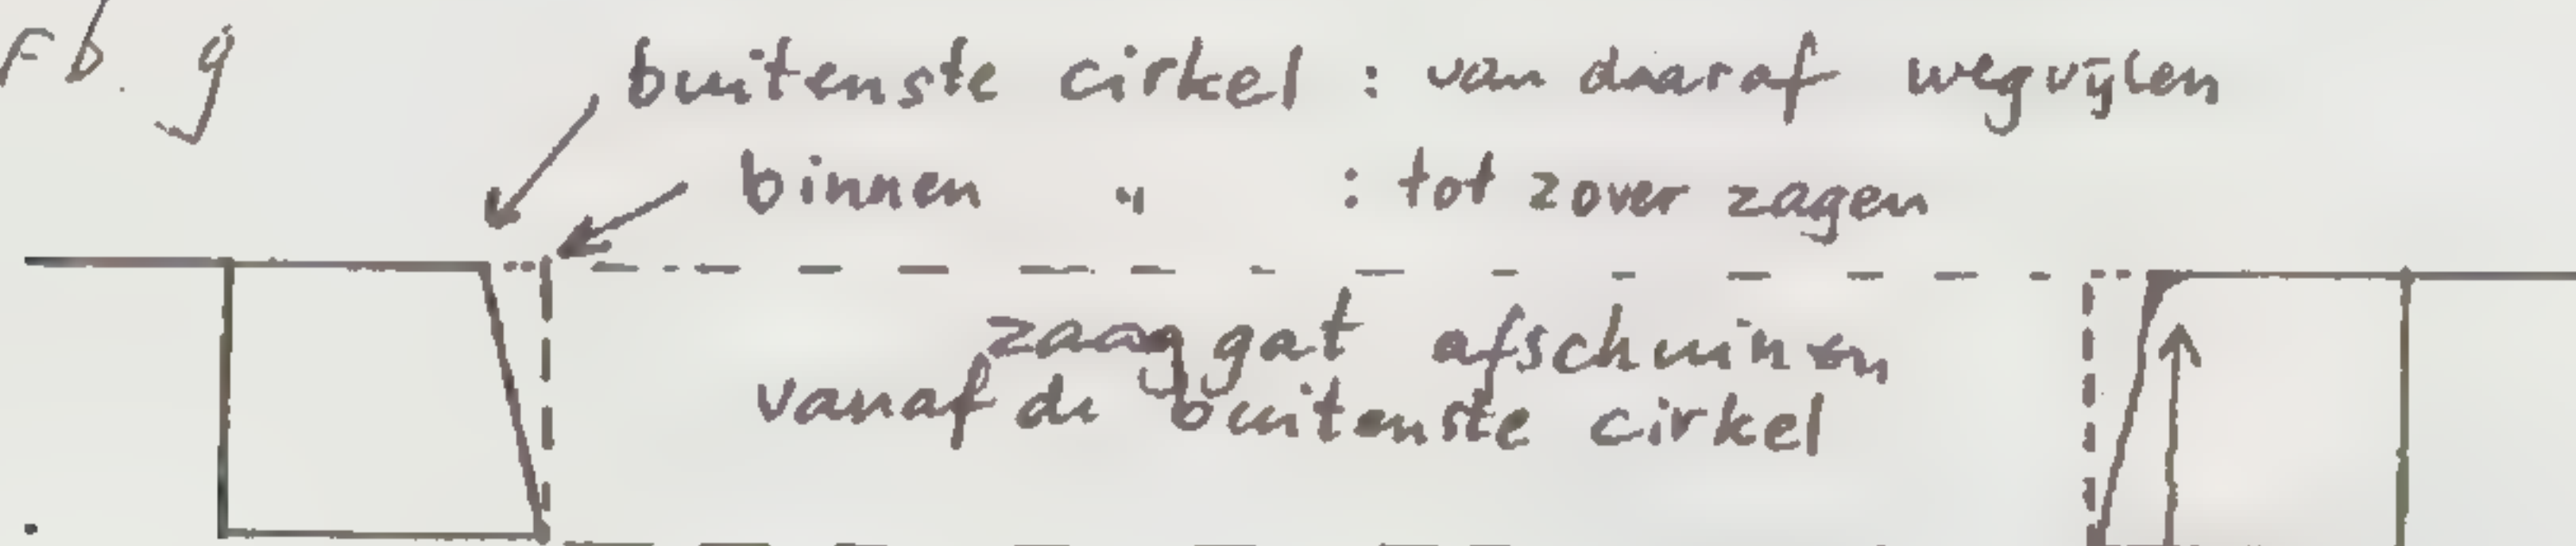 Fb. g
buitenste cirkel : van daaraf wegvijlen
binnen " : tot zover zagen
zaaggat afschuinen
vanaf de buitenste cirkel